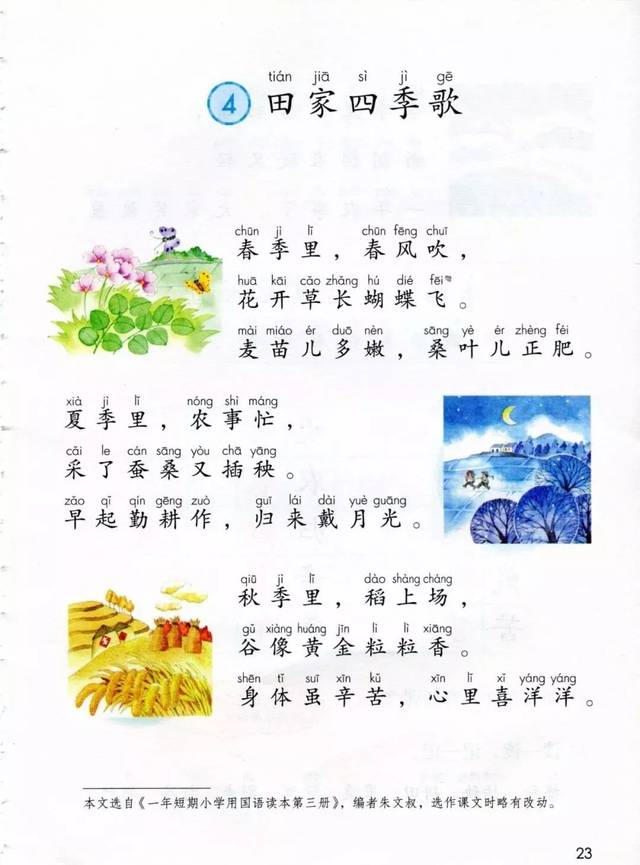 tián jiā sì jì gē
4 田家四季歌
chūn jì lǐ chūn fēng chuī
春季里，春风吹，
huā kāi cǎo zhǎng hú dié fēi
花开草长蝴蝶飞。
mài miáo ér duō nèn sāng yè ér zhèng féi
麦苗儿多嫩，桑叶儿正肥。
xià jì lǐ nóng shì máng
夏季里，农事忙，
cǎi le cán sāng yòu chā yāng
采了蚕桑又插秧。
zǎo qǐ qín gēng zuò guī lái dài yuè guāng
早起勤耕作，归来戴月光。
qiū jì lǐ dào shàng cháng
秋季里，稻上场，
gǔ xiàng huáng jīn lì lì xiāng
谷像黄金粒粒香。
shēn tǐ suī xīn kǔ xīn lǐ xǐ yáng yáng
身体虽辛苦，心里喜洋洋。
本文选自《一年短期小学用国语读本第三册》，编者朱文叔，选作课文时略有改动。
23